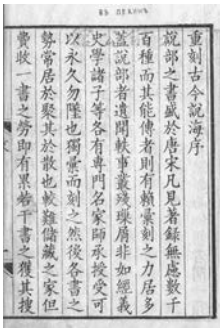 重刻古今說海序
說部之書盛於唐宋凡見著錄無慮數千
百種而其能傳者則有賴彙刻之力居多
蓋說部者遺聞軼事叢殘璅屑非如經義
史學諸子等各有專門名家師承授受可
以永久勿墜也獨彙而刻之然後各書之
勢常居於聚其於散也較難儲藏之家但
費收一書之勞即有累若干書之獲其搜